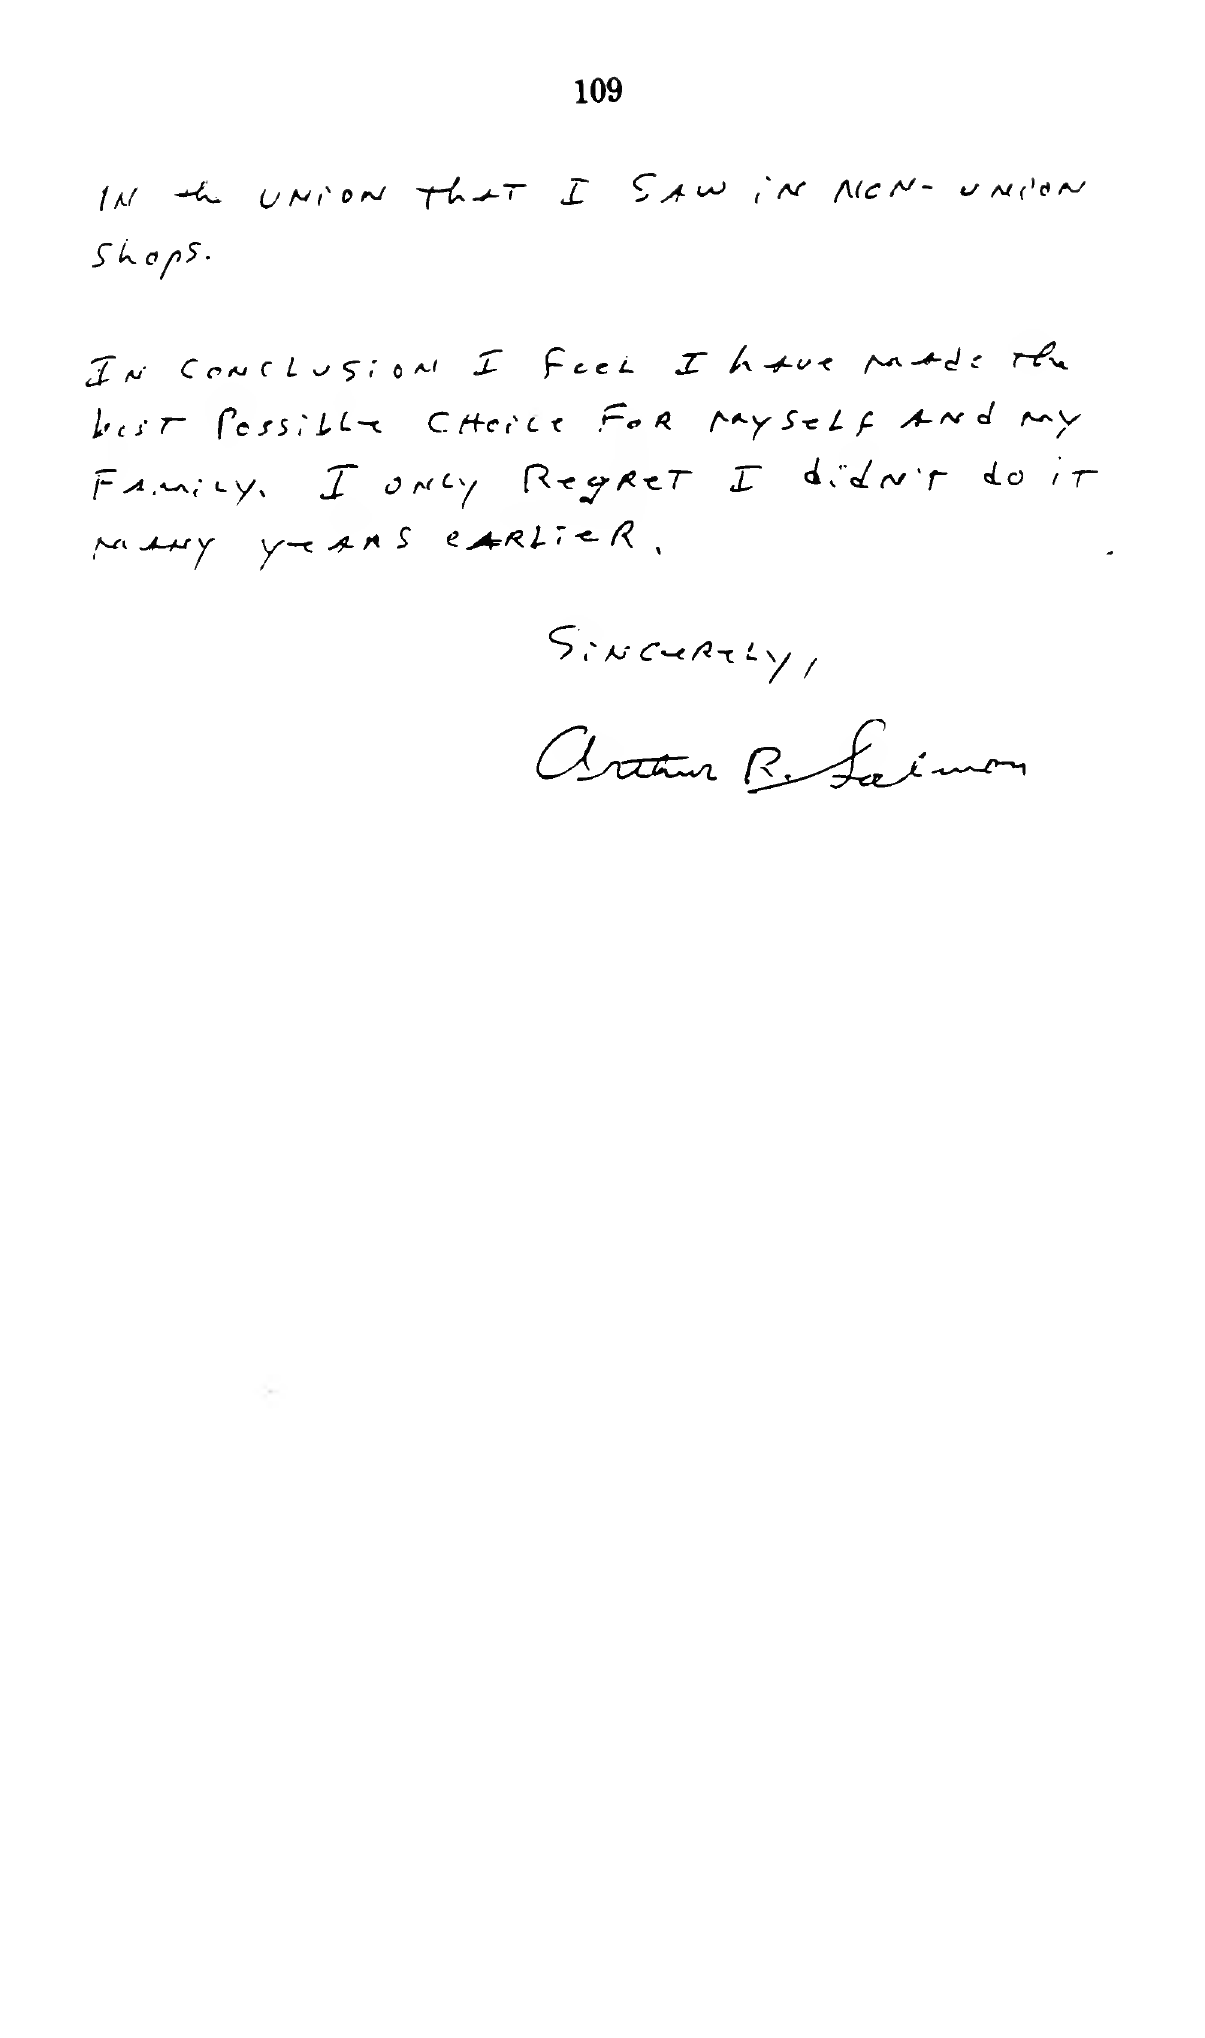 109
IN the UNION that I SAW in NON-UNION
Shops.
In Conclusion I feel I have made the
best Possible Choice For myself And my
Family. I only Regret I didn't do it
many years earlier.
Sincerely,
Arthur R. Salmon